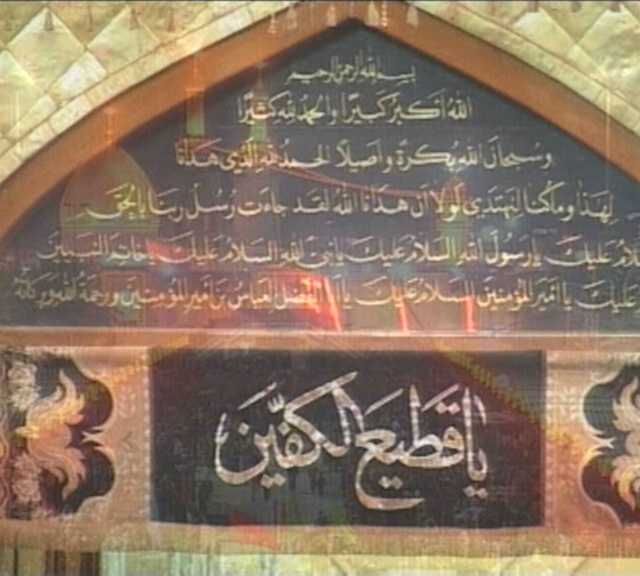 بسم الله الرحمن الرحيم
الله أكبر كبيرا والحمد لله كثيرا
وسبحان الله بكرة واصيلا الحمد لله الذي هدانا
لهذا وماكنا لنهتدي لولا ان هدانا الله لقد جاءت رسل ربنا بالحق
السلام عليك يارسول الله السلام عليك يانبي الله السلام عليك ياخاتم النبيين
عليك يا امير المؤمنين السلام عليك يا ابا الفضل العباس بن امير المؤمنين ورحمة الله وبركاته
يا قطيع الكفّين